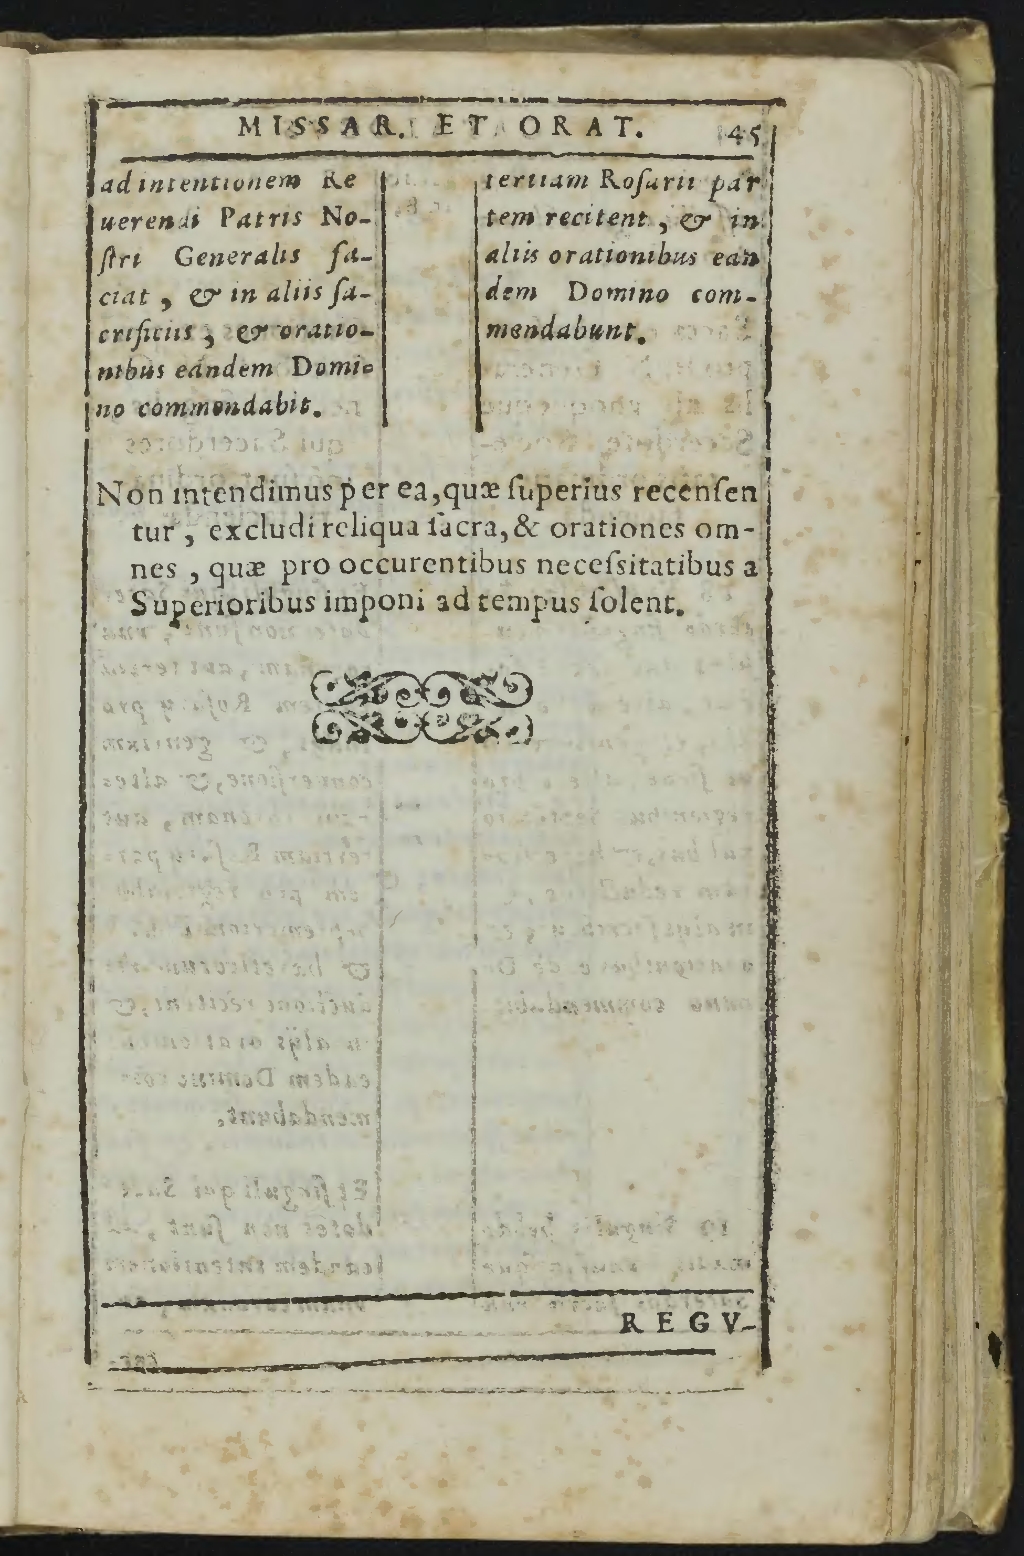 MISSAR. ET ORAT. 45
ad intentionem Re
uerendi Patris No-
ſtri Generalis fa-
ciat, & in aliis ſa-
crificiis, & oratio-
nibus eandem Domi-
no commendabit.
tertiam Roſarii par
tem recitent, & in
aliis orationibus ean
dem Domino com-
mendabunt.
Non intendimus per ea, quæ ſuperius recenſen
tur, excludi reliqua ſacra, & orationes om-
nes, quæ pro occurentibus neceſsitatibus a
Superioribus imponi ad tempus ſolent.
REGV-